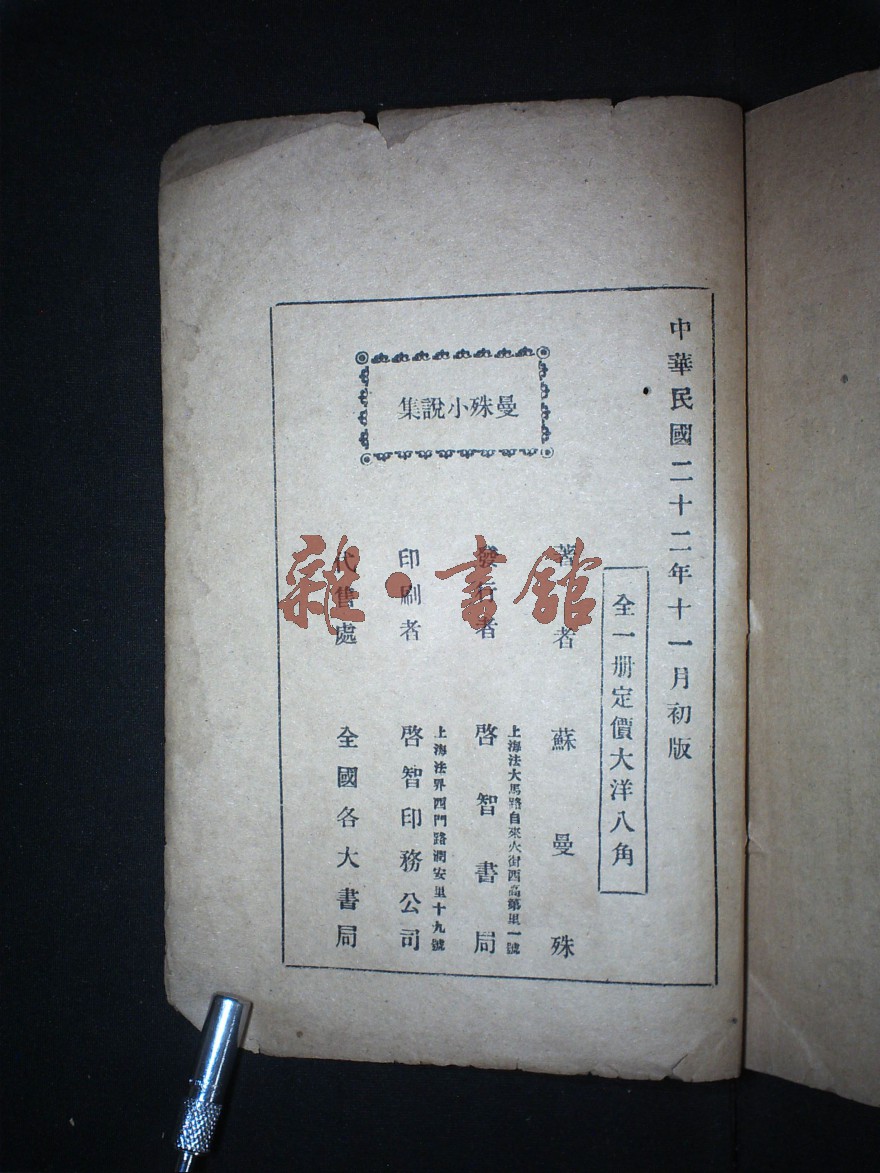 中華民國二十二年十一月初版
全一册定價大洋八角
曼殊小說集
著者 蘇曼殊
發行者 啓智書局
上海法大馬路自來火街西高第里一號
印刷者 啓智印務公司
上海法界西門路潤安里十九號
代售處 全國各大書局
雜·書館